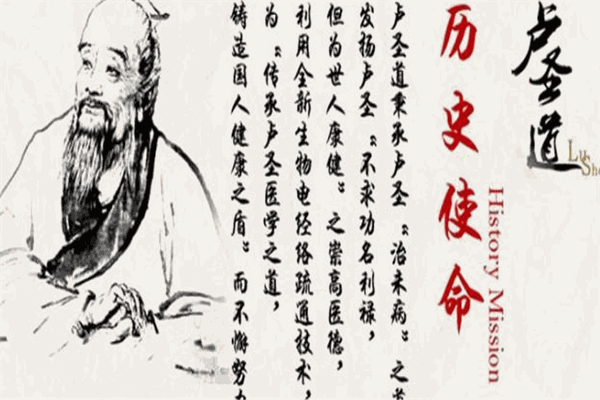 卢圣道
Lu She
历史使命
History Mission
卢圣道秉承卢圣“治未病”之
发扬卢圣“不求功名利禄，
但为世人康健”之崇高医德，
利用全新生物电经络疏通技术，
为“传承卢圣医学之道，
铸造国人健康之盾”而不懈努力